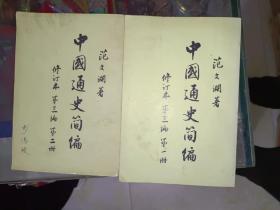 范文瀾著
中國通史简编
修订本 第三编 第二册
范文瀾著
中國通史简编
修订本 第三编 第一册